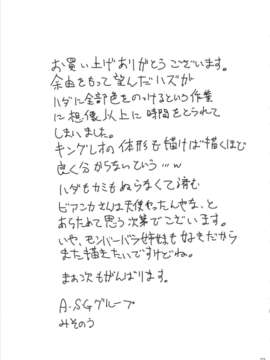 お買い上げありがとうございます。
余裕をもって望んだハズが
ハダに全部色をのっけるという作業
に想像以上に時間をとられて
しまいました。
キングレオの体形も描けば描くほど
良く分からないていう…w
ハダもカミもぬらなくて済む
ビアンカさんは天使やったんやな、と
あらためて思う次第でございます。
いや、モンバーバラ姉妹も好きだから
また描きたいですけどね。
まぁ次もがんばります。
A.SGグループ
みそのう